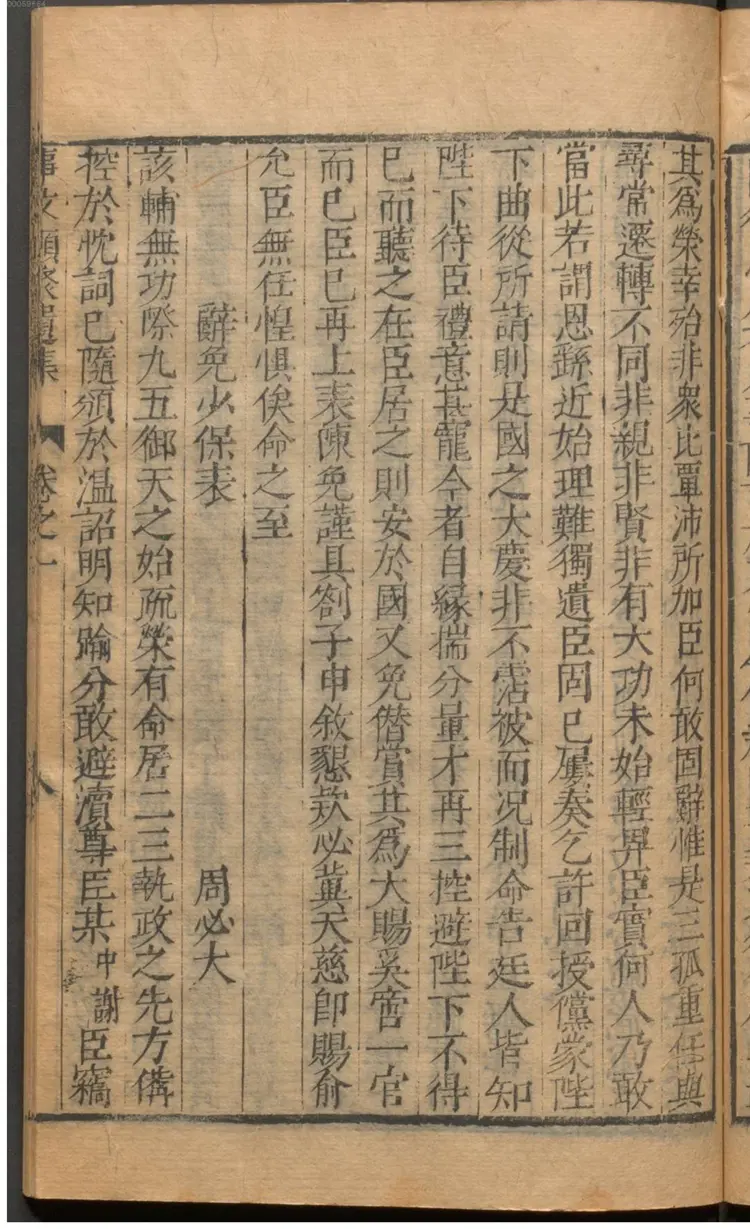 其爲榮幸殆非衆比覃沛所加臣何敢固辭惟是三孤重任與
尋常遷轉不同非親非賢非有大功未始輕畀臣實何人乃敢
當此若謂恩繇近始理難獨遺臣固已屢奏乞許回授儻蒙陛
下曲從所請則是國之大慶非不霑被而况制命告廷人皆知
陛下待臣禮意甚寵今者自縁揣分量才再三控避陛下不得
已而聽之在臣居之則安於國又免僭賞其爲大賜奚啻一官
而已臣已再上表陳免謹具劄子申敘懇欵必兾天慈卽賜俞
允臣無任惶惧俟命之至
辭免少保表 周必大
該輔無功際九五御天之始疏榮有命居二三執政之先方僃
控於忱詞已隨頒於温詔明知踰分敢避瀆尊臣某中謝臣竊
事文類聚遺集 卷之一 八